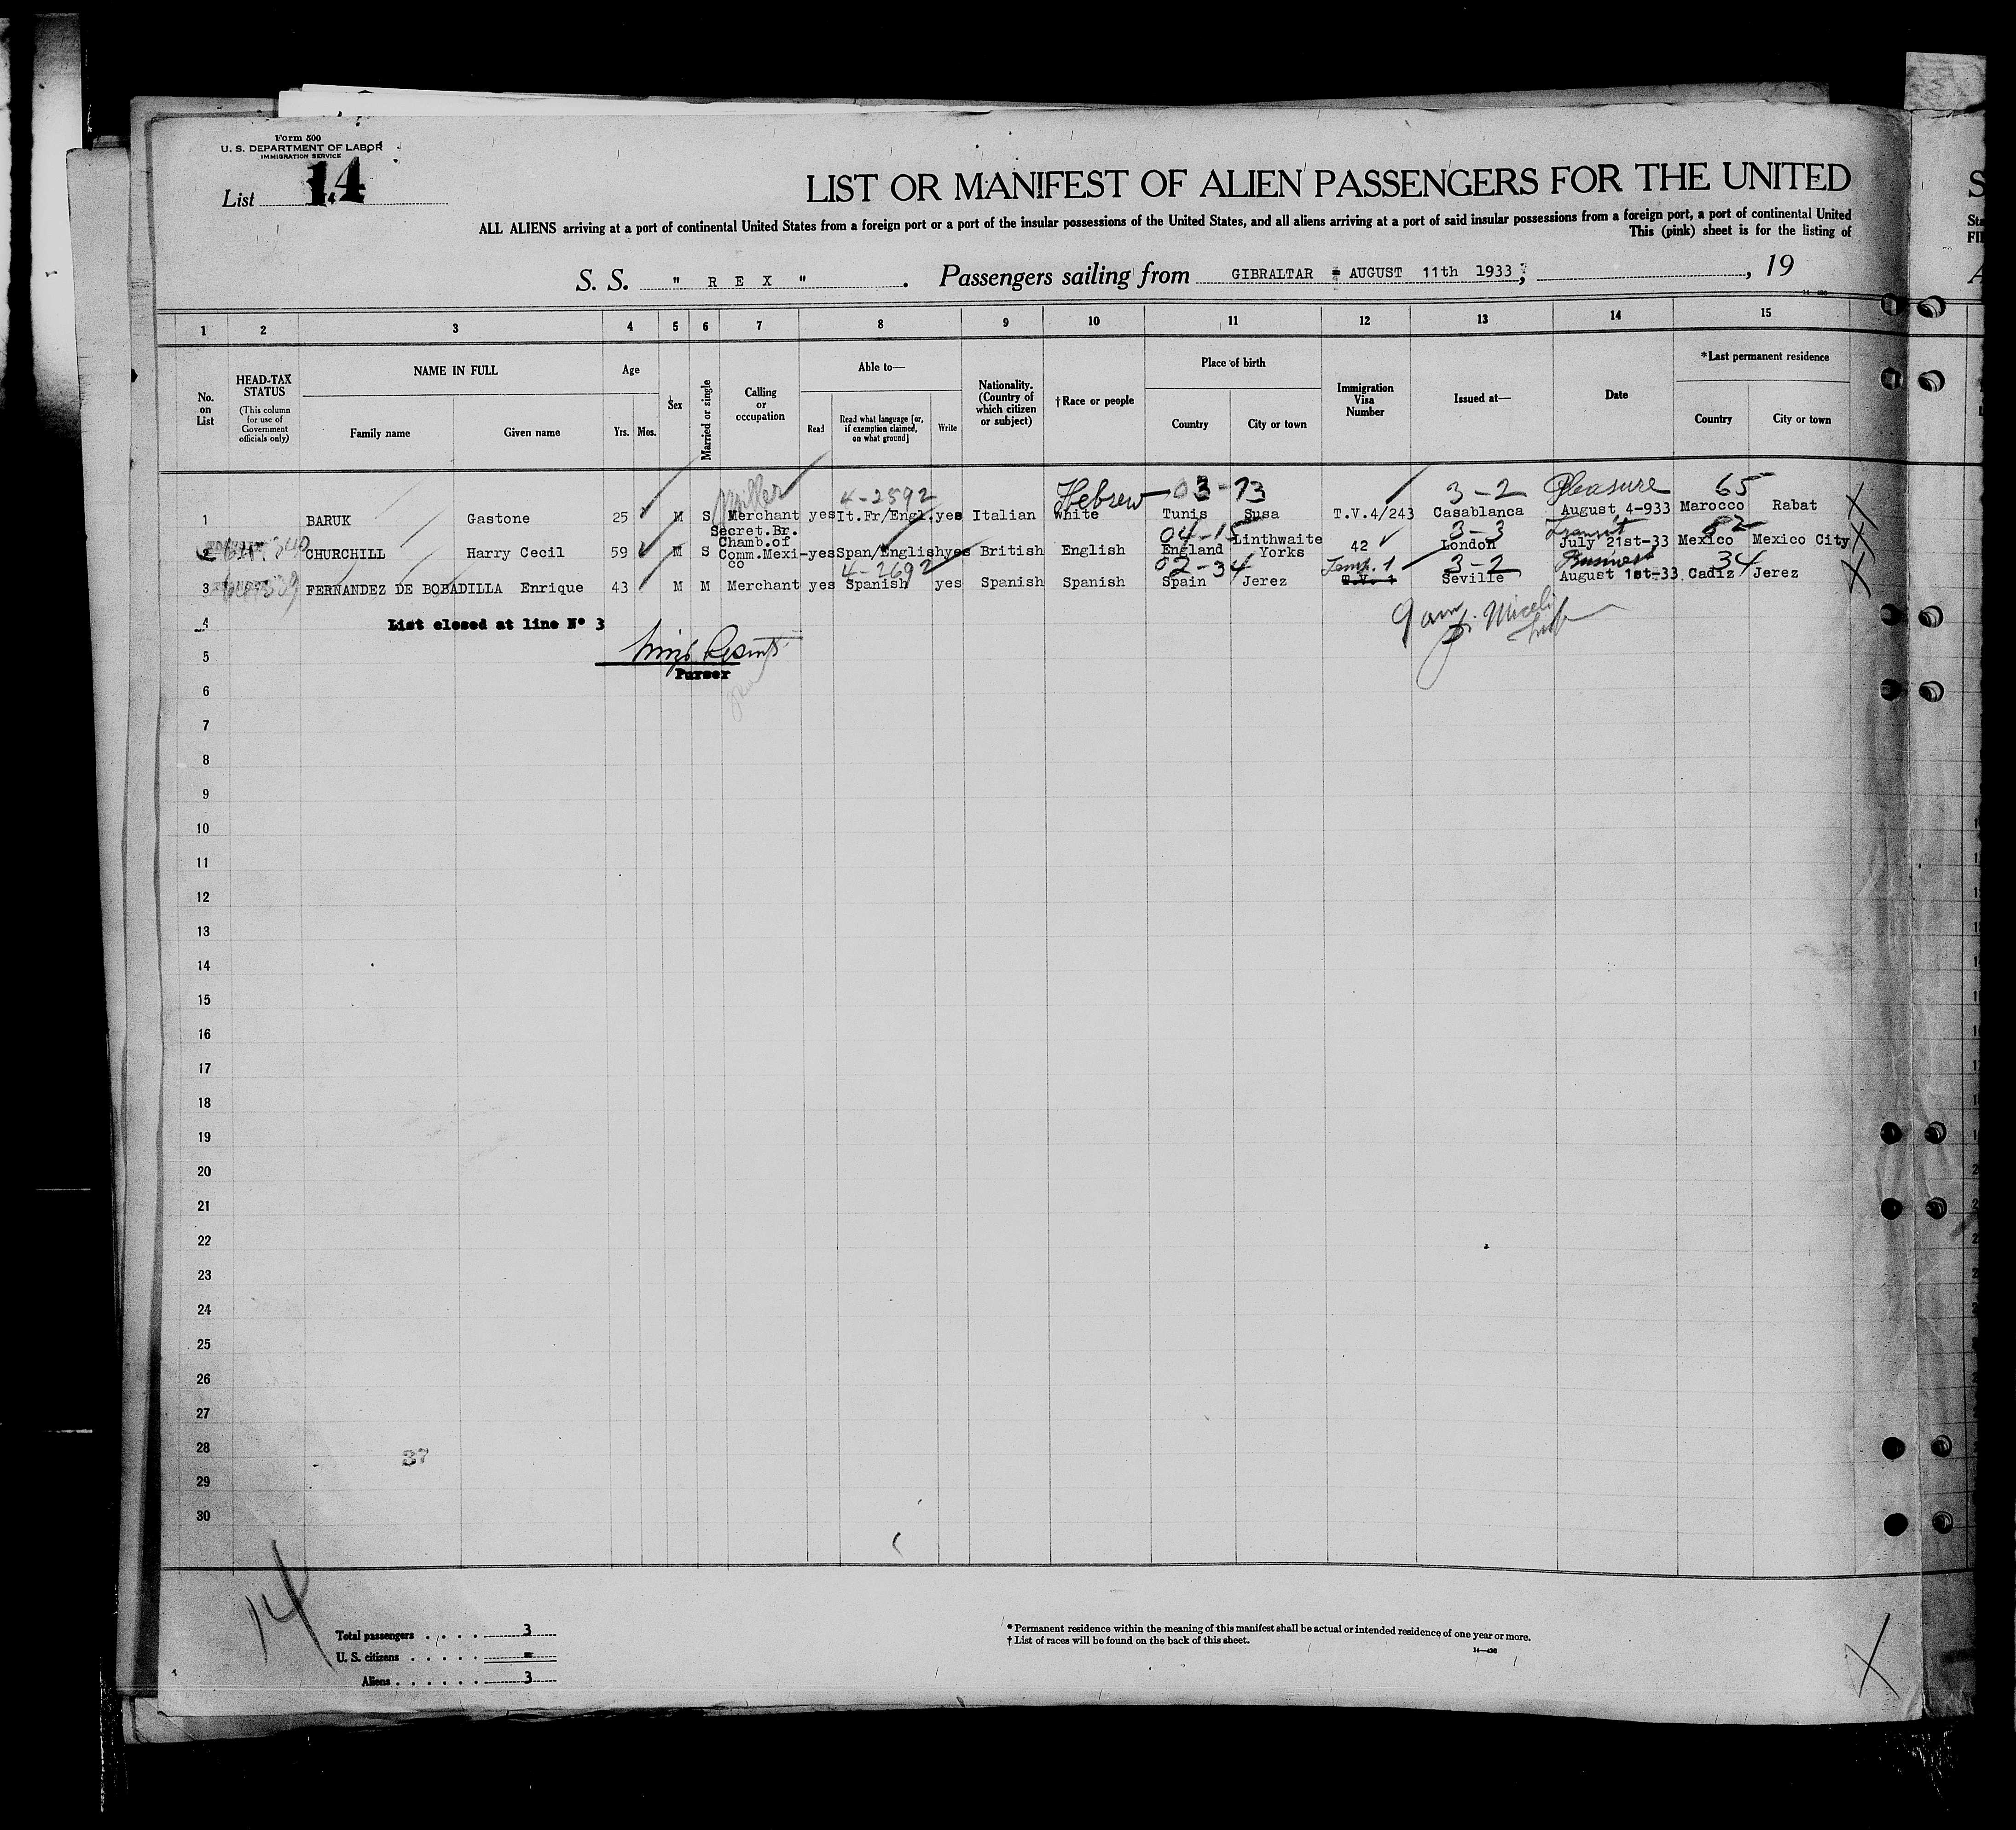 Form 500
U. S. DEPARTMENT OF LABOR
IMMIGRATION SERVICE
List 14
LIST OR MANIFEST OF ALIEN PASSENGERS FOR THE UNITED
ALL ALIENS arriving at a port of continental United States from a foreign port or a port of the insular possessions of the United States, and all aliens arriving at a port of said insular possessions from a foreign port, a port of continental United
This (pink) sheet is for the listing of
S. S. " R E X " . Passengers sailing from GIBRALTAR = AUGUST 11th 1933, , 19
14—430
1 2 3 4 5 6 7 8 9 10 11 12 13 14 15
No. on List
HEAD-TAX STATUS
(This column for use of Government officials only)
NAME IN FULL
Family name Given name
Age
Yrs. Mos.
Sex
Married or single
Calling or occupation
Able to—
Read Read what language [or, if exemption claimed, on what ground] Write
Nationality. (Country of which citizen or subject)
†Race or people
Place of birth
Country City or town
Immigration Visa Number
Issued at—
Date
*Last permanent residence
Country City or town
Miller 4-2592 Hebrew 03-73 3-2 Pleasure 65
1 BARUK Gastone 25 M S Merchant yes It.Fr/Engl. yes Italian White Tunis Susa T.V.4/243 Casablanca August 4-933 Marocco Rabat
04-15 3-3 Transit 52
2 CHURCHILL Harry Cecil 59 M S Secret.Br. Chamb.of Comm.Mexi-co yes Span/English yes British English England Linthwaite Yorks 42 London July 21st-33 Mexico Mexico City
4-2692 02-34 Temp. 1 3-2 Business 34
3 FERNANDEZ DE BOBADILLA Enrique 43 M M Merchant yes Spanish yes Spanish Spanish Spain Jerez T.V. 1 Seville August 1st-33 Cadiz Jerez
4 List closed at line N° 3
5
Purser
6
7
8
9
10
11
12
13
14
15
16
17
18
19
20
21
22
23
24
25
26
27
28
37
29
30
14
Total passengers . . . . 3
U. S. citizens . . . . . =
Aliens . . . . . . 3
* Permanent residence within the meaning of this manifest shall be actual or intended residence of one year or more.
† List of races will be found on the back of this sheet.
14—430